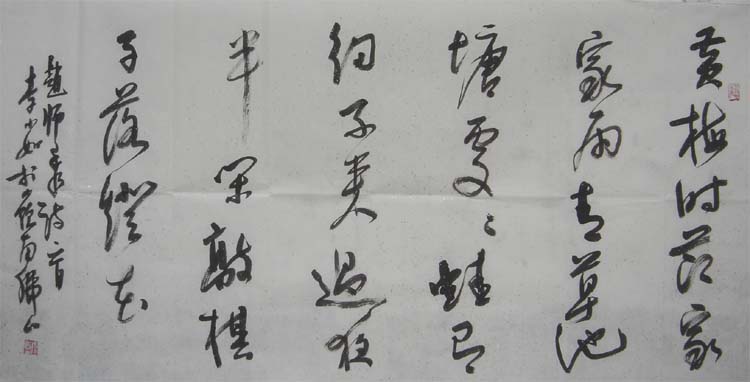 黄梅时节家
家雨青草池
塘处处蛙有
约不来过夜
半闲敲棋
子落燈花
赵师秀诗一首
李小如 南 山